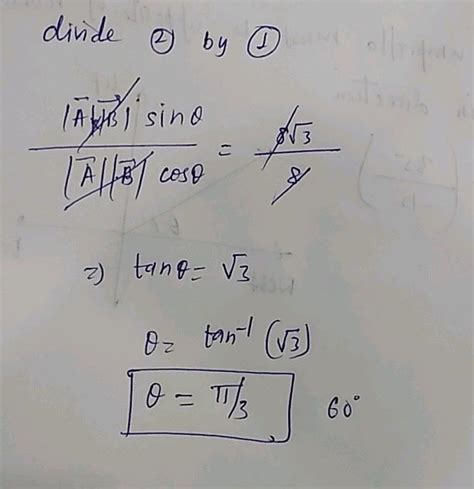 divide ② by ①
|A̅||B̅| sinθ / |A̅||B̅| cosθ = 8√3 / 8
⇒ tanθ = √3
θ = tan⁻¹ (√3)
θ = π/3 60°